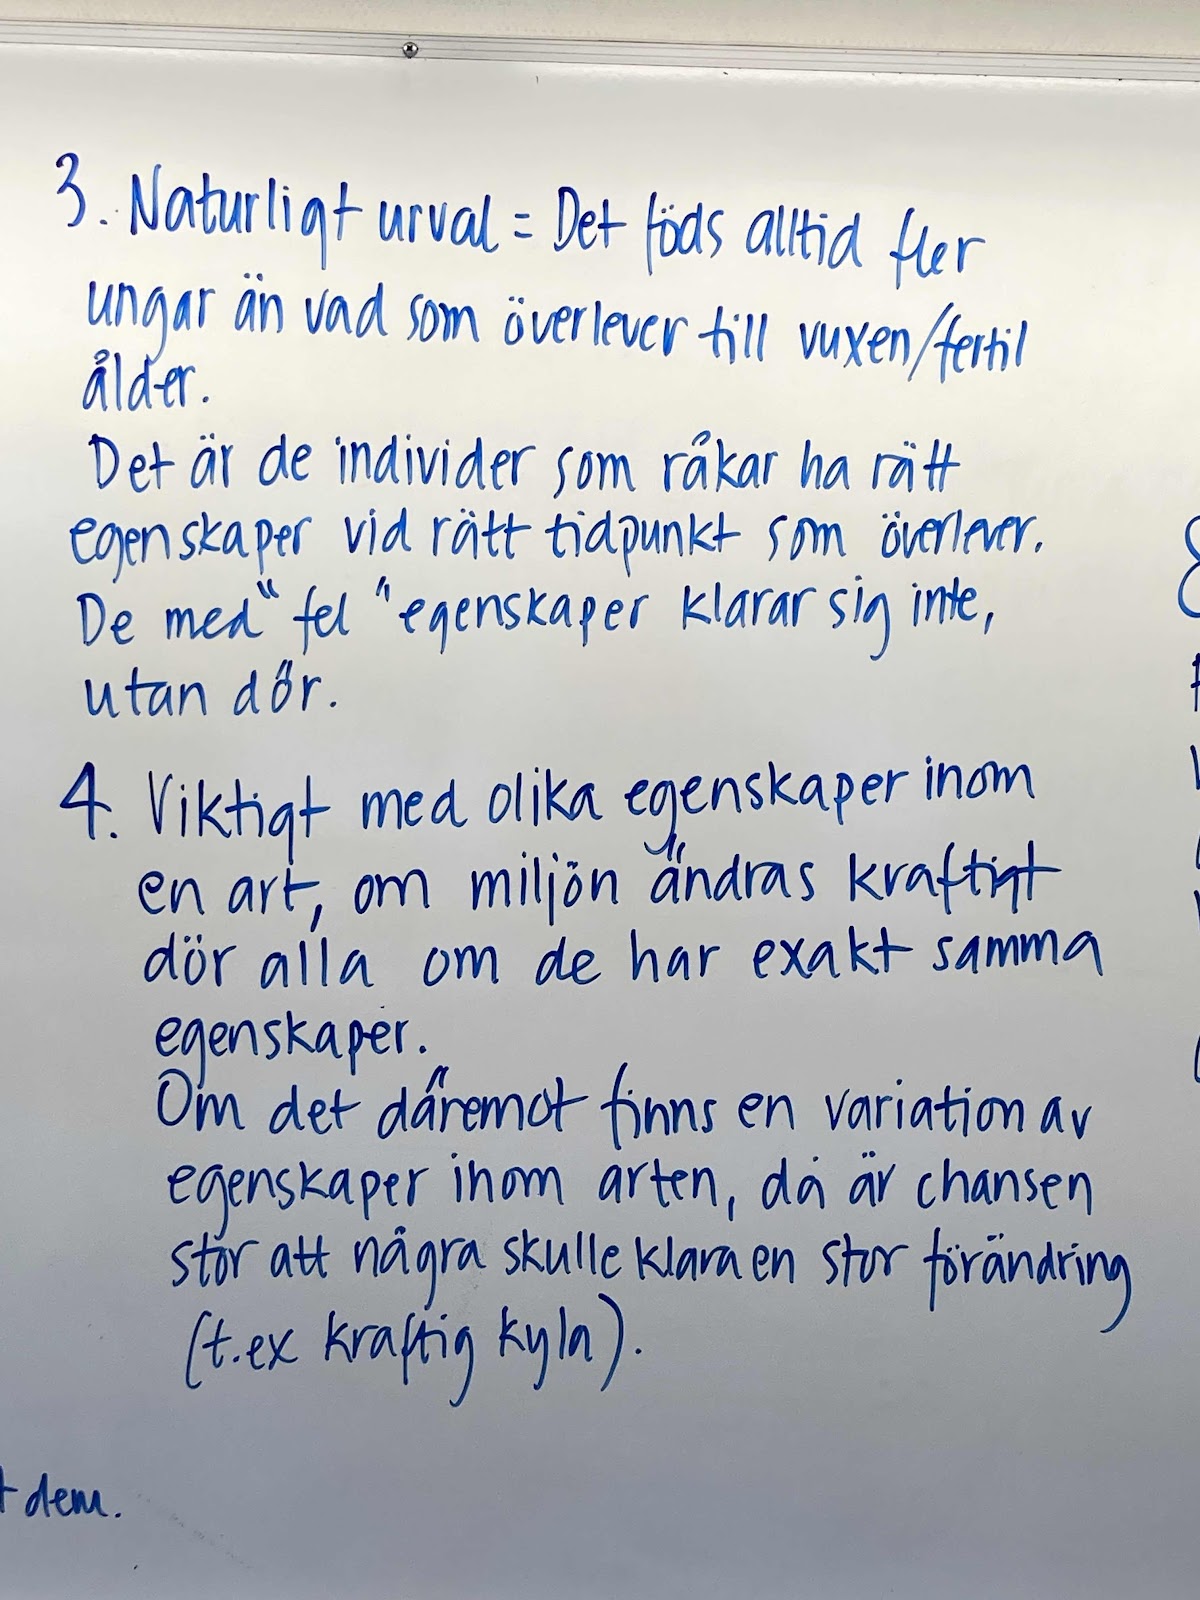 3. Naturligt urval = Det föds alltid fler
ungar än vad som överlever till vuxen/fertil
ålder.
Det är de individer som råkar ha rätt
egenskaper vid rätt tidpunkt som överlever.
De med "fel" egenskaper klarar sig inte,
utan dör.
4. Viktigt med olika egenskaper inom
en art, om miljön ändras kraftigt
dör alla om de har exakt samma
egenskaper.
Om det däremot finns en variation av
egenskaper inom arten, då är chansen
stor att några skulle klara en stor förändring
(t.ex kraftig kyla).
dem.